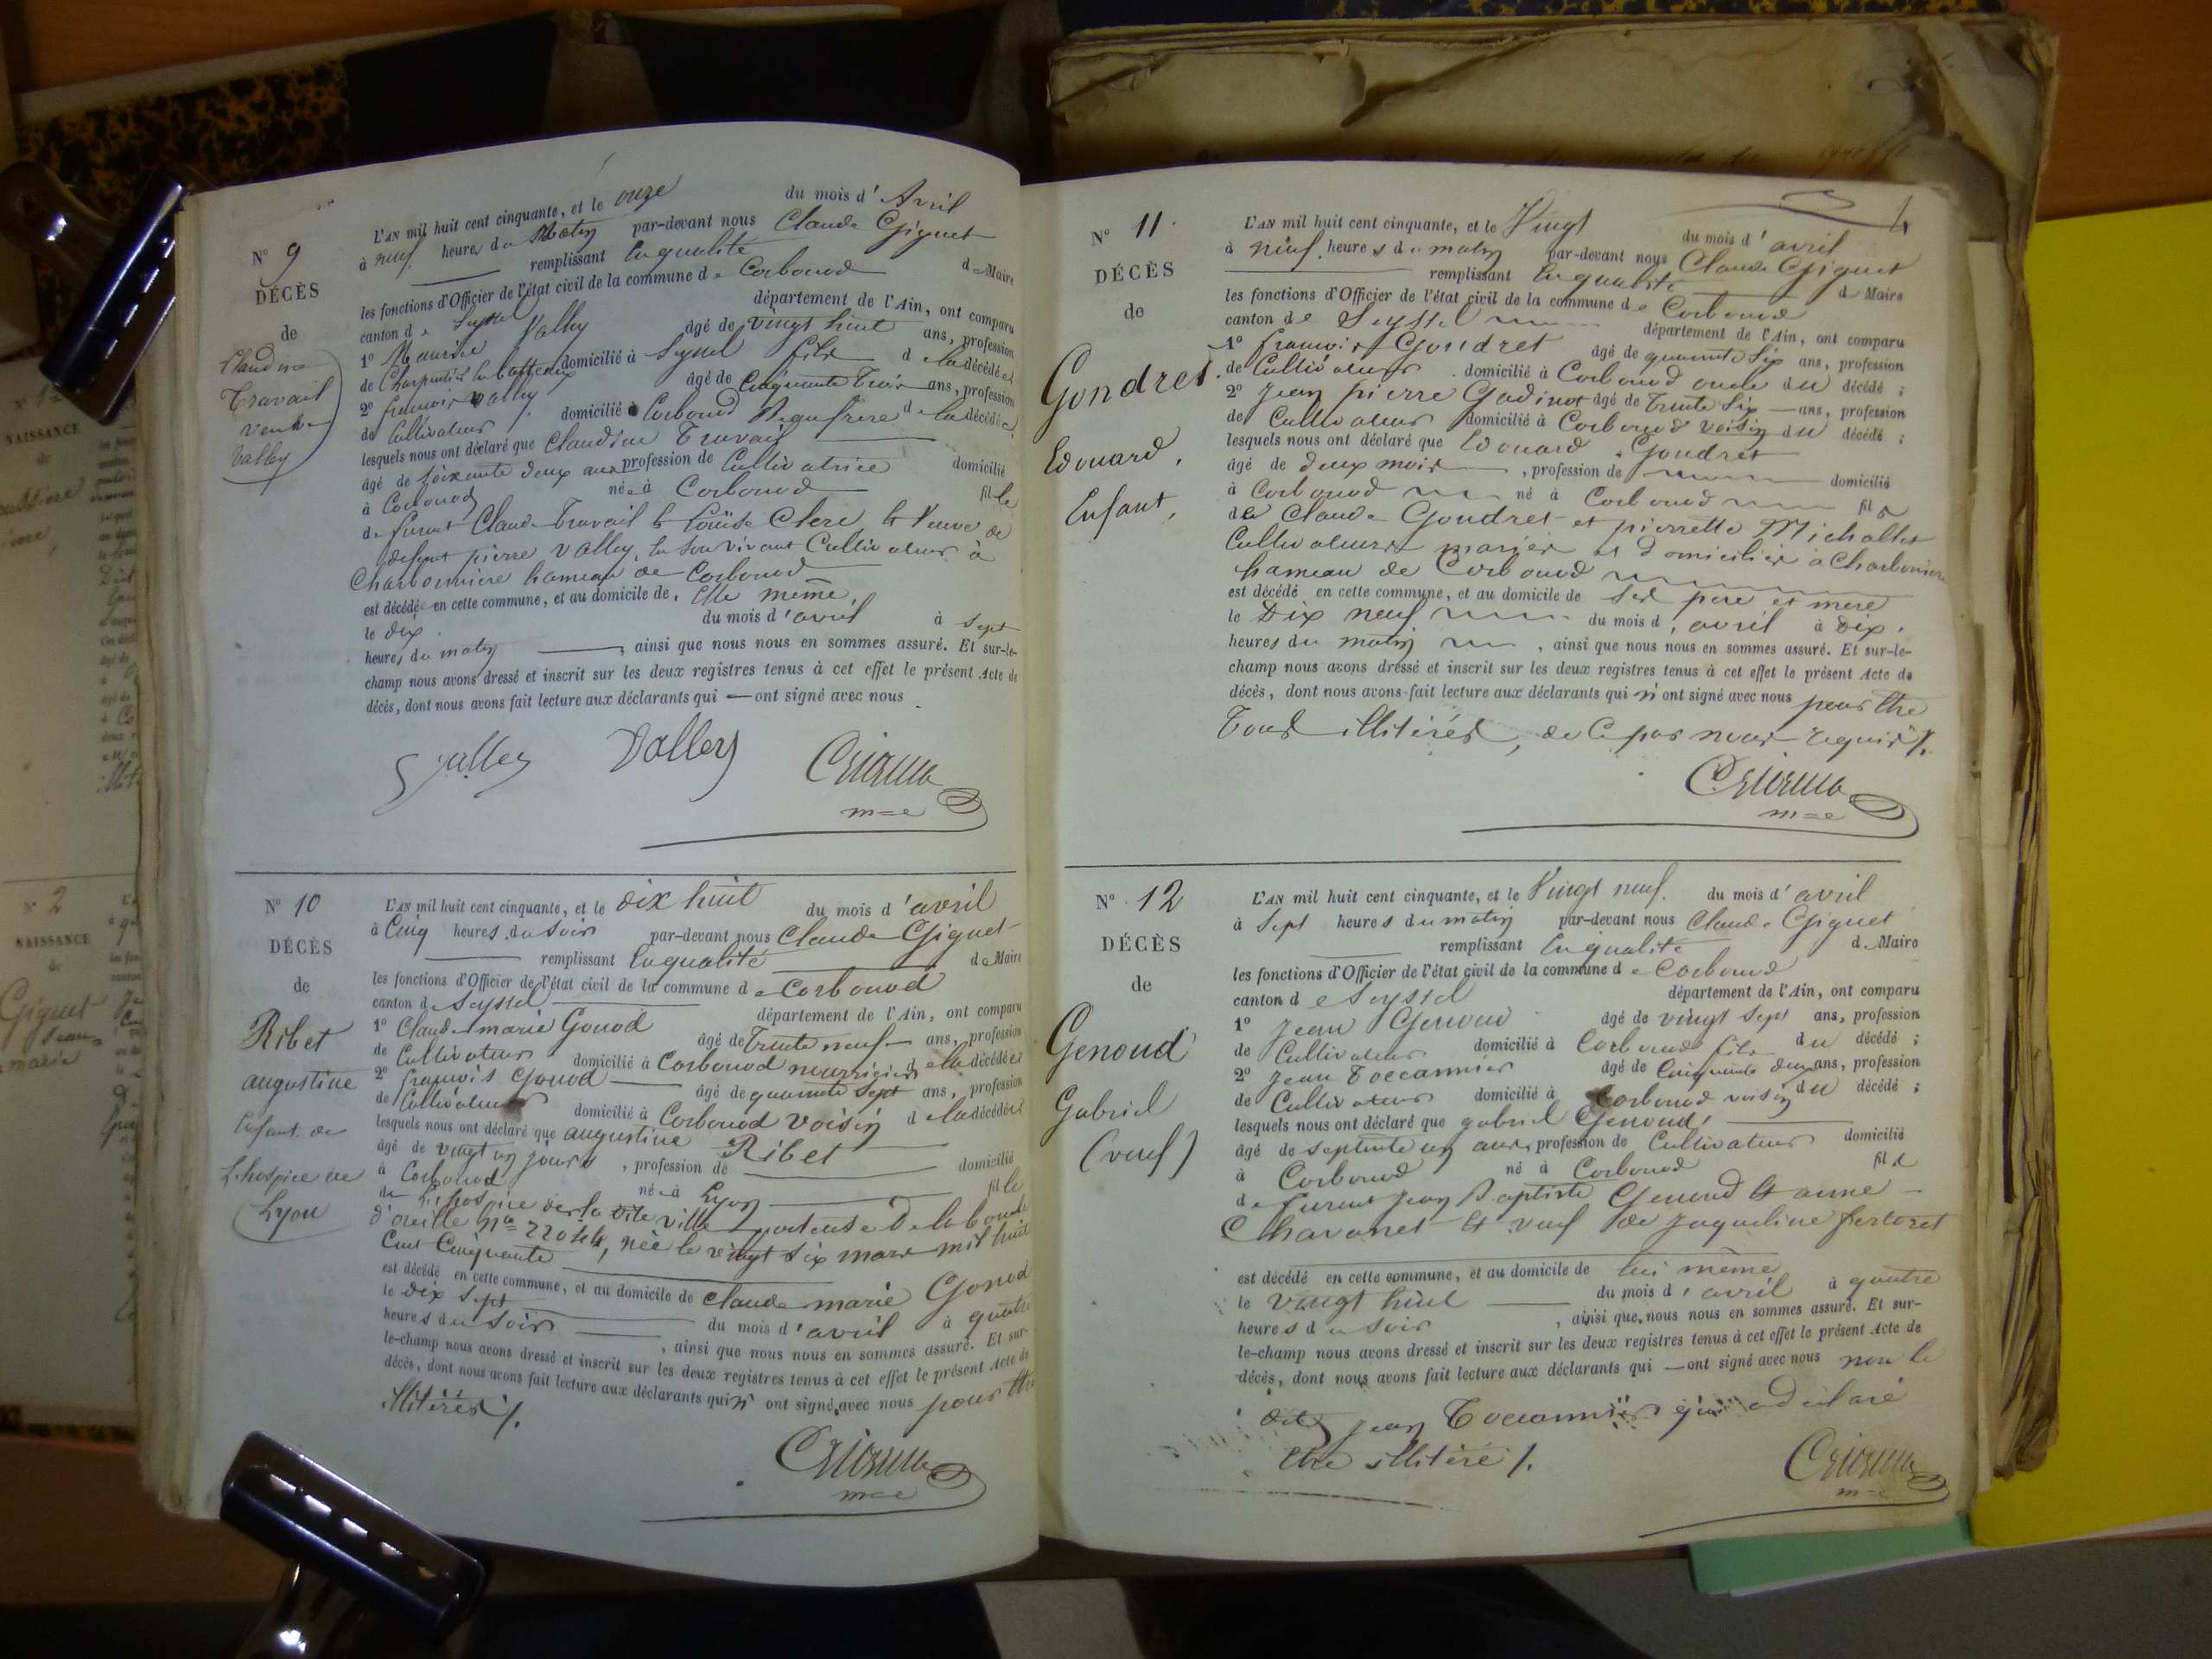 N° 9
DÉCÈS
de
Claudine
Travail
veuve
Valley
L'AN mil huit cent cinquante, et le onze du mois d'Avril
à neuf heures du Matin par-devant nous Claude Giguet
remplissant en qualité de Maire
les fonctions d'Officier de l'état civil de la commune de Corbonod
canton de Seyssel département de l'Ain, ont comparu
1° Maurice Valley âgé de vingt huit ans, profession
de Charpentier en batteaux domicilié à Seyssel fils de la décédée
2° françois Valley âgé de Cinquante Trois ans, profession
de Cultivateur domicilié à Corbonod Beaufrere de la décédée,
lesquels nous ont déclaré que Claudine Travail
âgé de soixante deux ans profession de Cultivatrice domicilié
à Corbonod née à Corbonod fille
de furent Claude Travail et Louise Clerc, et Veuve de
defunt pierre Valley, en son vivant Cultivateur à
Charbonniere hameau de Corbonod
est décédée en cette commune, et au domicile de Elle même,
le dix du mois d'avril à sept
heures du matin, ainsi que nous nous en sommes assuré. Et sur-le-
champ nous avons dressé et inscrit sur les deux registres tenus à cet effet le présent Acte de
décès, dont nous avons fait lecture aux déclarants qui — ont signé avec nous
Valley Valley
m=e
N° 10
DÉCÈS
de
Ribet
augustine
Enfant de
L'hospice de
Lyon
L'AN mil huit cent cinquante, et le dix huit du mois d'avril
à Cinq heures du soir par-devant nous Claude Giguet
remplissant en qualité de Maire
les fonctions d'Officier de l'état civil de la commune de Corbonod
canton de Seyssel département de l'Ain, ont comparu
1° Claude marie Gonod âgé de Trente neuf ans, profession
de Cultivateur domicilié à Corbonod nourricier de la décédée
2° françois Gonod âgé de quarante sept ans, profession
de Cultivateur domicilié à Corbonod voisin de la décédée
lesquels nous ont déclaré que augustine Ribet
âgé de vingt un jours, profession de domicilié
à Corbonod née à Lyon fille
de L'hospice de la ville portense De la boucle
d'oreille n° 22044, née le vingt six mars mil huit
Cent Cinquante
est décédé en cette commune, et au domicile de Claude marie Gonod
le dix sept du mois d'avril à quatre
heures du soir, ainsi que nous nous en sommes assuré. Et sur-
le-champ nous avons dressé et inscrit sur les deux registres tenus à cet effet le présent Acte de
décès, dont nous avons fait lecture aux déclarants qui n'ont signé avec nous pour être
illitérés /.
m=e
N° 11
DÉCÈS
de
Gondret
Edouard,
Enfant,
L'AN mil huit cent cinquante, et le Vingt du mois d'avril
à neuf heures du matin par-devant nous Claude Giguet
remplissant en qualité de Maire
les fonctions d'Officier de l'état civil de la commune de Corbonod
canton de Seyssel département de l'Ain, ont comparu
1° françois Gondret âgé de quarante six ans, profession
de Cultivateur domicilié à Corbonod oncle du décédé ;
2° Jean pierre Godinot âgé de trente six ans, profession
de Cultivateur domicilié à Corbonod voisin du décédé ;
lesquels nous ont déclaré que Edouard Gondret
âgé de deux mois, profession de domicilié
à Corbonod né à Corbonod fils
de Claude Gondret et pierrette Michallet
Cultivateurs mariés et domiciliés à Charbonniere
hameau de Corbonod
est décédé en cette commune, et au domicile de ses pere et mere
le Dix neuf du mois d'avril à Dix
heures du matin, ainsi que nous nous en sommes assuré. Et sur-le-
champ nous avons dressé et inscrit sur les deux registres tenus à cet effet le présent Acte de
décès, dont nous avons fait lecture aux déclarants qui n'ont signé avec nous pour être
Tous illitérés, de Ce par nous requis /.
m=e
N° 12
DÉCÈS
de
Genoud
Gabriel
(veuf)
L'AN mil huit cent cinquante, et le Vingt neuf du mois d'avril
à Sept heures du matin par-devant nous Claude Giguet
remplissant en qualité de Maire
les fonctions d'Officier de l'état civil de la commune de Corbonod
canton de Seyssel département de l'Ain, ont comparu
1° Jean Genoud âgé de vingt sept ans, profession
de Cultivateur domicilié à Corbonod fils du décédé ;
2° Jean Toccannier âgé de Cinquante deux ans, profession
de Cultivateur domicilié à Corbonod voisin du décédé ;
lesquels nous ont déclaré que gabriel Genoud,
âgé de septente un ans, profession de Cultivateur domicilié
à Corbonod né à Corbonod fils
de furent Jean Baptiste Genoud et anne
Chavanet et veuf de Jaqueline fertoret
est décédé en cette commune, et au domicile de lui même
le vingt huit du mois d'avril à quatre
heures du soir, ainsi que nous nous en sommes assuré. Et sur-
le-champ nous avons dressé et inscrit sur les deux registres tenus à cet effet le présent Acte de
décès, dont nous avons fait lecture aux déclarants qui — ont signé avec nous non le
dit Jean Toccannier qui a déclaré
être illitéré /.
m=e